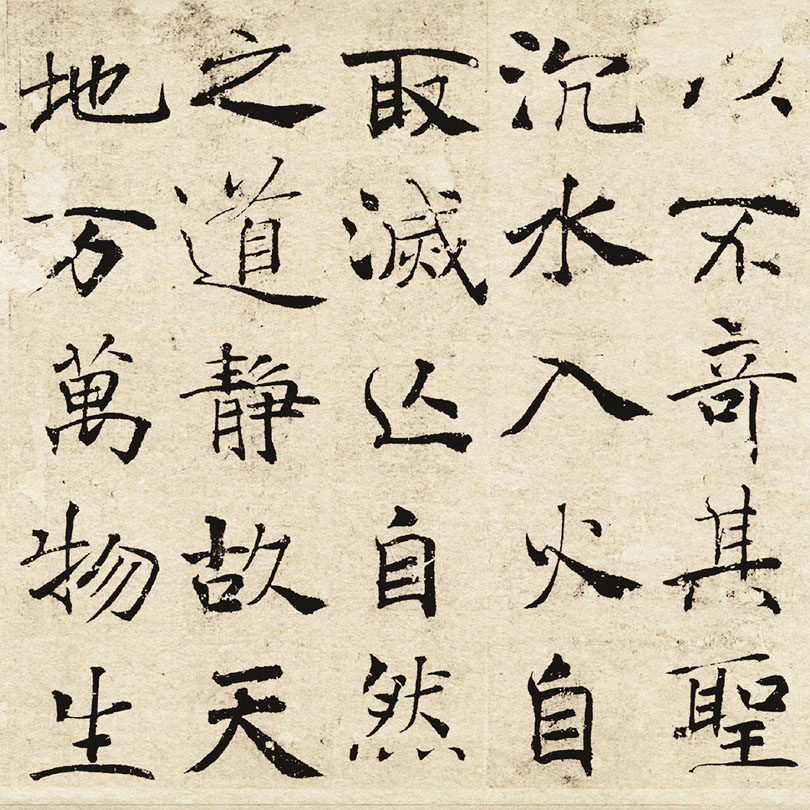 以不竒其聖
沉水入火自
取滅亾自然
之道靜故天
地万萬物生